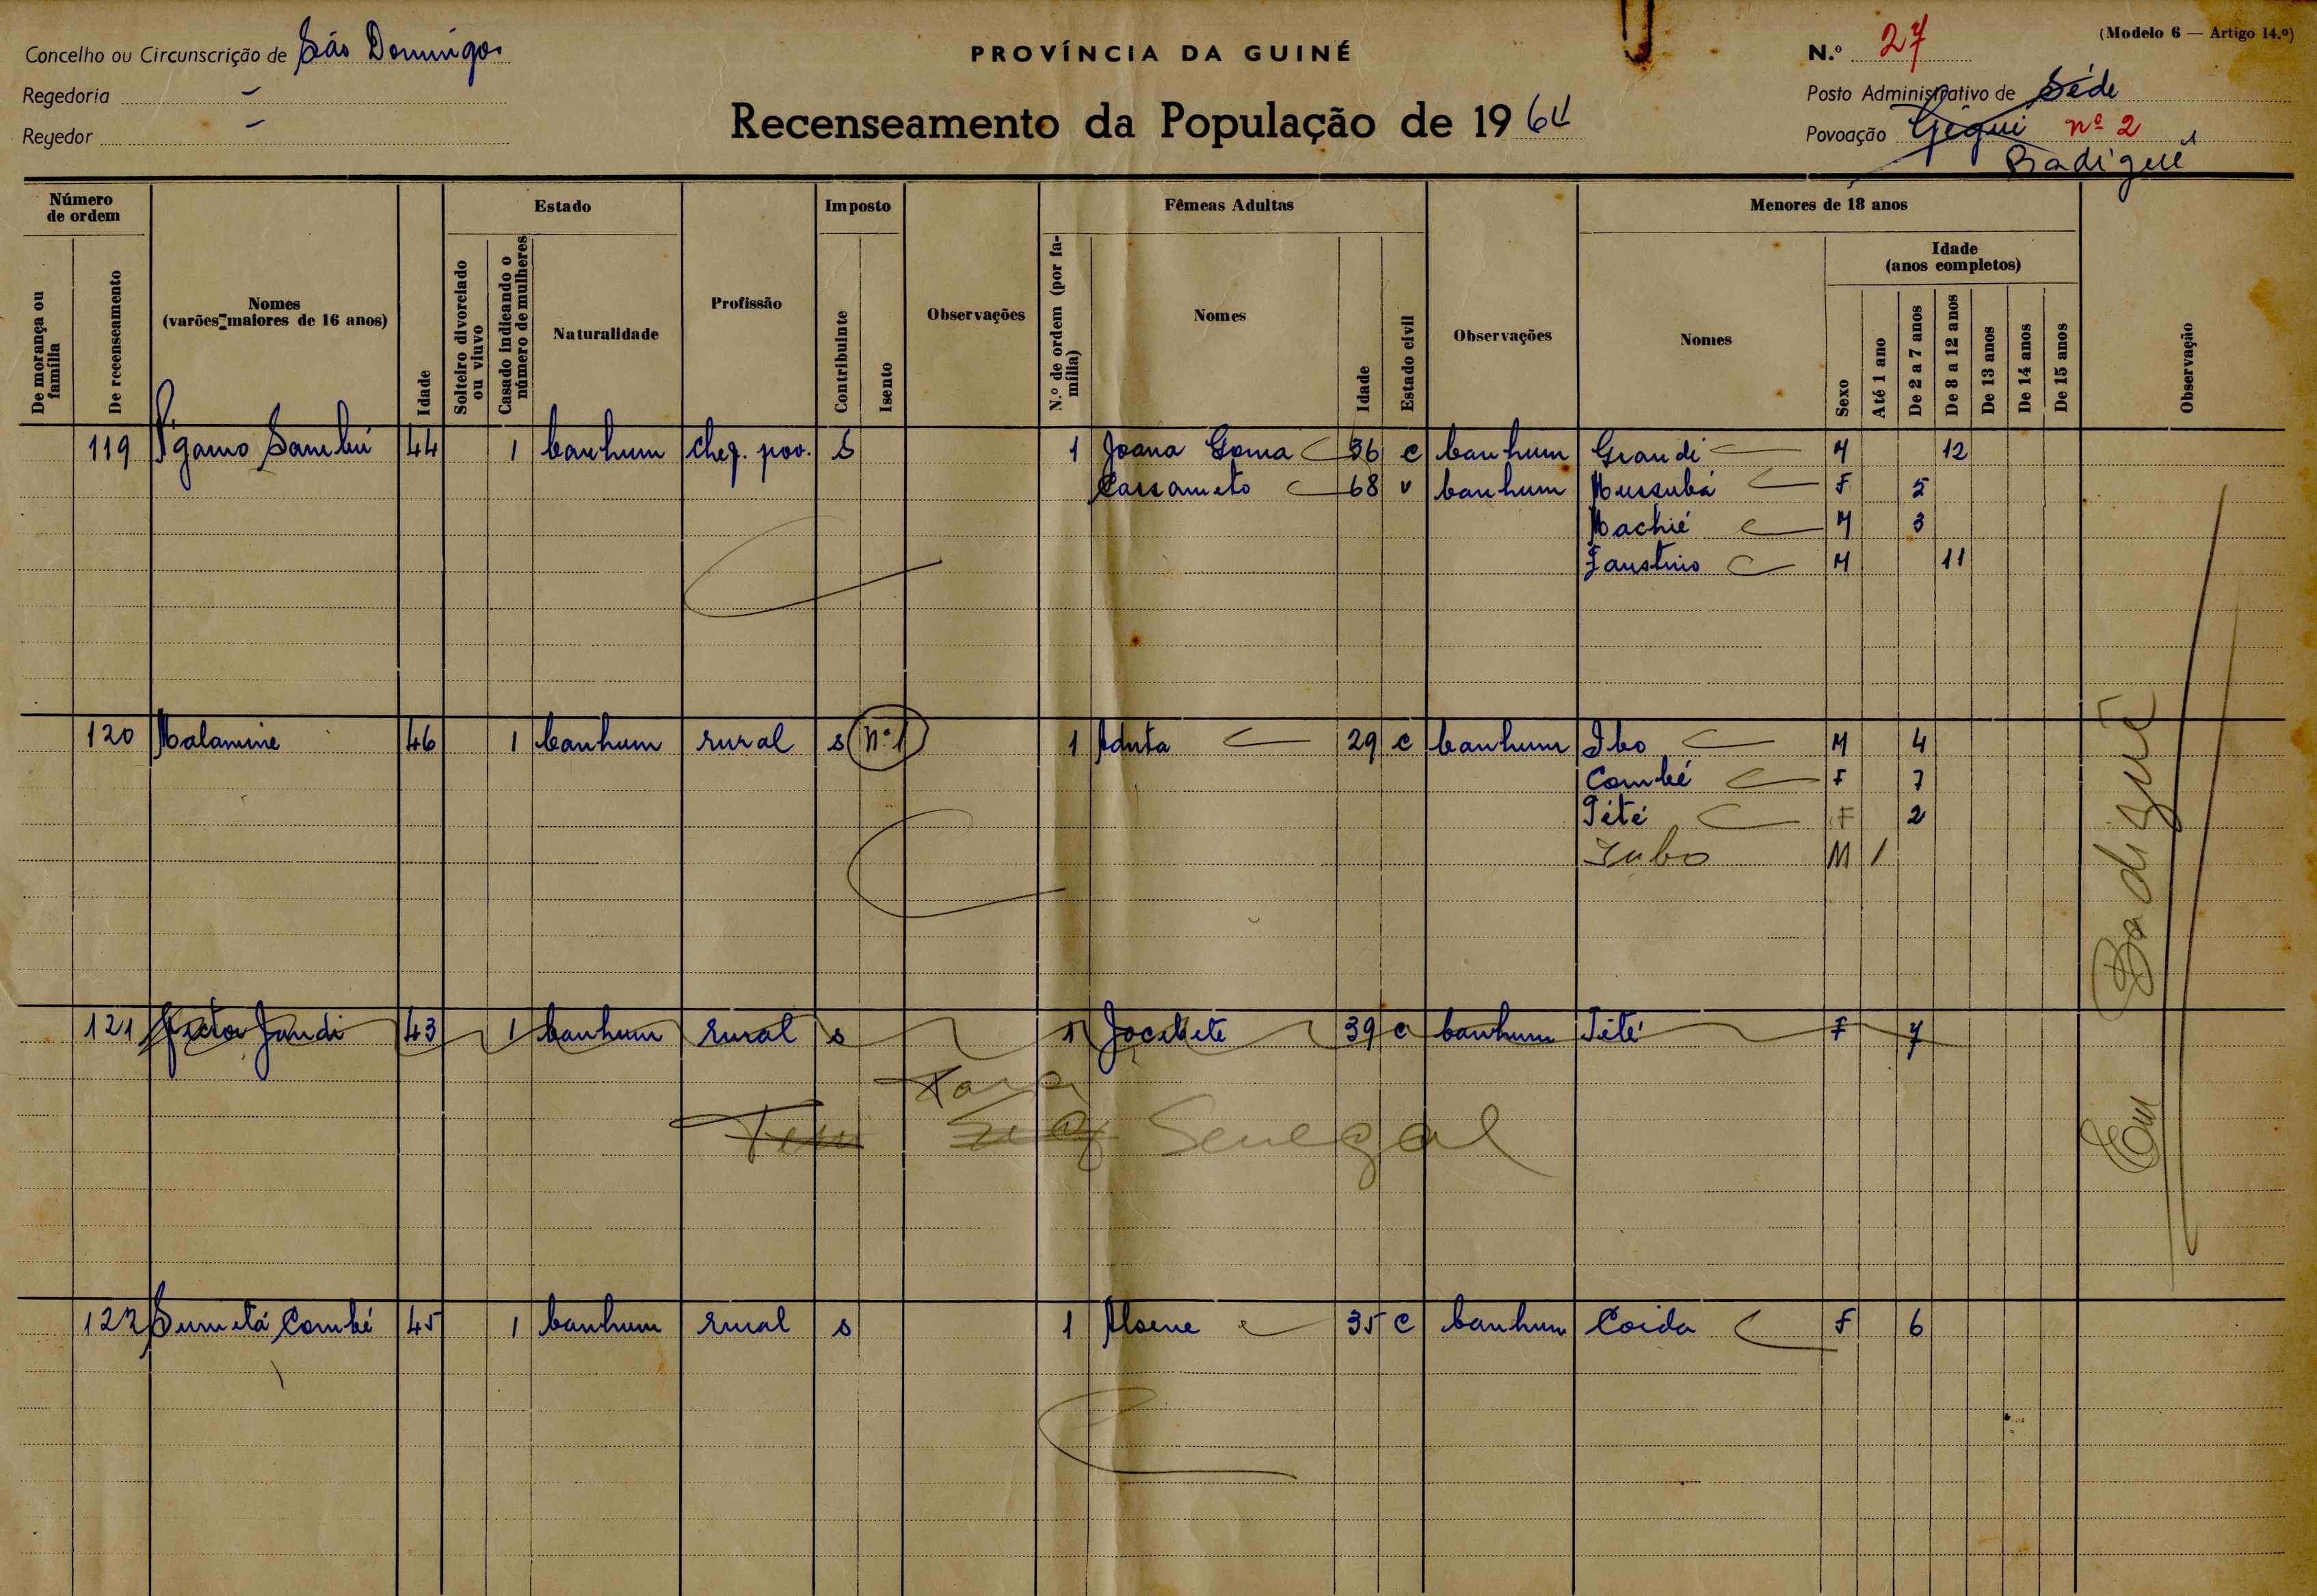 Concelho ou Circunscrição de São Domingos
PROVÍNCIA DA GUINÉ
N.º 27
(Modelo 6 — Artigo 14.º)
Regedoria –
Posto Administrativo de Séde
Regedor –
Recenseamento da População de 1964
Povoação Gégui nº 2
Badigué
Número de ordem
Estado
Imposto
Fêmeas Adultas
Menores de 18 anos
De morança ou família
De recenseamento
Nomes (varões maiores de 16 anos)
Idade
Solteiro divorciado ou viuvo
Casado indicando o número de mulheres
Naturalidade
Profissão
Contribuinte
Isento
Observações
N.º de ordem (por família)
Nomes
Idade
Estado civil
Observações
Nomes
Sexo
Idade (anos completos)
Até 1 ano
De 2 a 7 anos
De 8 a 12 anos
De 13 anos
De 14 anos
De 15 anos
Observação
119 Sambú 44 1 banhum chef. pov. s 1 Joana Goma 36 c banhum Grandi M 12
Cassameto 68 v banhum Mussubá F 5
Machié M 3
Faustino M 11
120 Malamine 46 1 banhum rural s nº 1 1 Aduta 29 c banhum Ibo M 4
Combé F 7
Tété F 2
M 1
121 Jandi 43 1 banhum rural s 1 Jocebete 39 c banhum Tété F 7
Para
Tem Senegal
122 Sumetá Combé 45 1 banhum rural s 1 Alsene 35 c banhum Coida F 6
Em Badigué